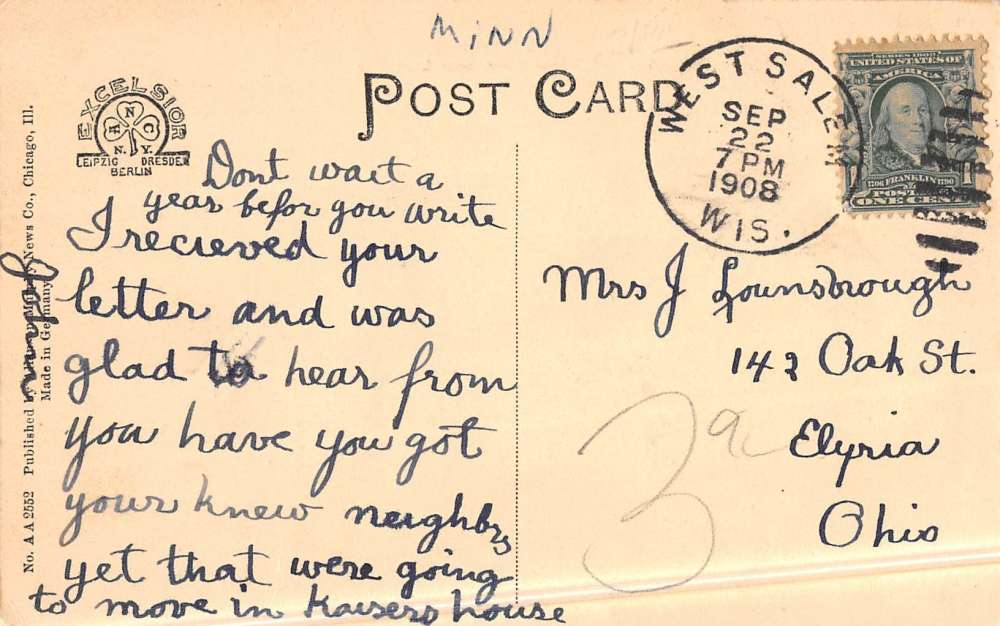 MINN
POST CARD
EXCELSIOR
A N C
N.Y.
LEIPZIG DRESDEN
BERLIN
WEST SALEM
SEP
22
7 PM
1908
WIS.
SERIES 1902
UNITED STATES OF
AMERICA
1706 FRANKLIN 1790
ONE CENT
Dont wait a
year befor you write
I recieved your
letter and was
glad to hear from
you have you got
your knew neighbrs
yet that were going
to move in Kaisers house
Mrs J Lounsbrough
142 Oak St.
Elyria
Ohio
3
No. A A 2552 Published News Co., Chicago, Ill.
Made in Germany